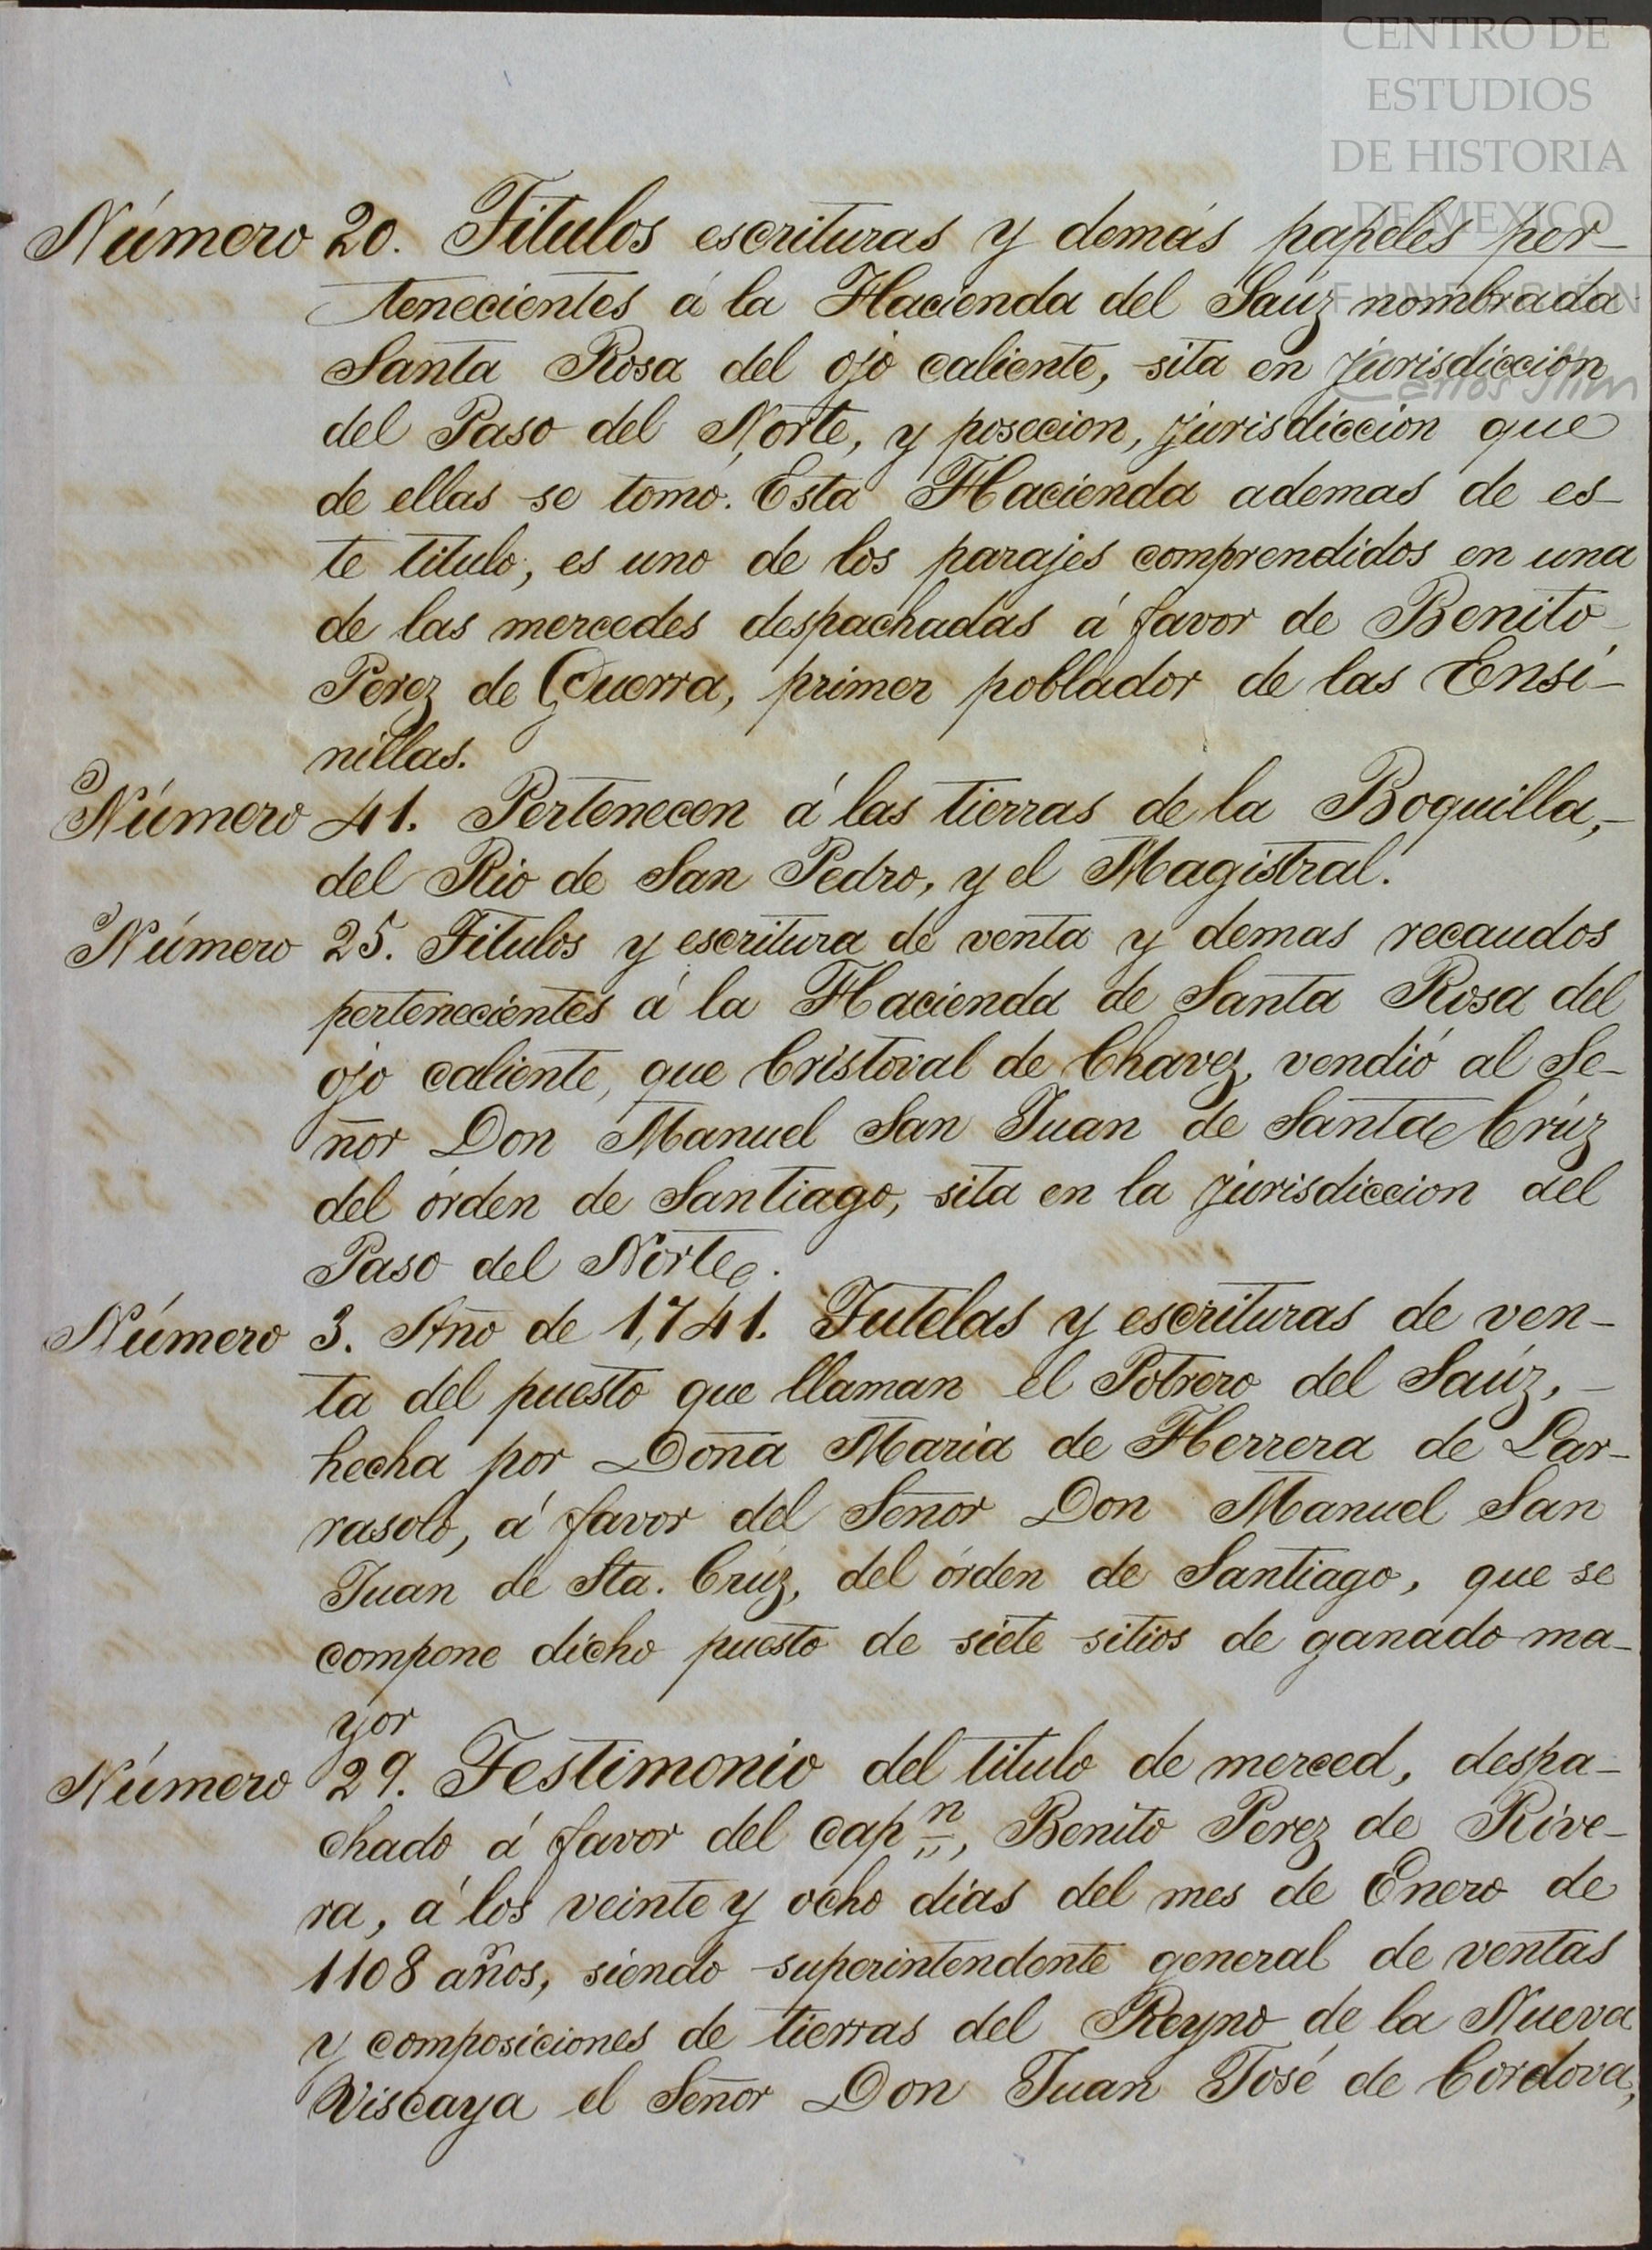 CENTRO DE
ESTUDIOS
DE HISTORIA
DE MEXICO
FUNDACIÓN
Carlos Slim
Número 20. Titulos escrituras y demás papeles per-
tenecientes á la Hacienda del Saúz nombrada
Santa Rosa del ojo caliente, sita en jurisdiccion
del Paso del Norte, y posecion, jurisdiccion que
de ellas se tomó. Esta Hacienda ademas de es-
te titulo, es uno de los parajes comprendidos en una
de las mercedes despachadas á favor de Benito
Perez de Guerra, primer poblador de las Ensi-
nillas.
Número 41. Pertenecen á las tierras de la Boquilla,-
del Rio de San Pedro, y el Magistral.
Número 25. Titulos y escritura de venta y demas recaudos
pertenecientes á la Hacienda de Santa Rosa del
ojo caliente, que Cristoval de Chavez, vendió al Se-
ñor Don Manuel San Juan de Santa Crúz
del órden de Santiago, sita en la jurisdiccion del
Paso del Norte.
Número 3. Año de 1,741. Tutelas y escrituras de ven-
ta del puesto que llaman el Potrero del Saúz,-
hecha por Doña Maria de Herrera de Lar-
rasolo, á favor del Señor Don Manuel San
Juan de Sta. Crúz, del órden de Santiago, que se
compone dicho puesto de siete sitios de ganado ma-
yor
Número 29. Testimonio del titulo de merced, despa-
chado á favor del capn, Benito Perez de Rive-
ra, á los veinte y ocho dias del mes de Enero de
1108 años, siendo superintendente general de ventas
y composiciones de tierras del Reyno de la Nueva
Viscaya el Señor Don Juan José de Cordova,